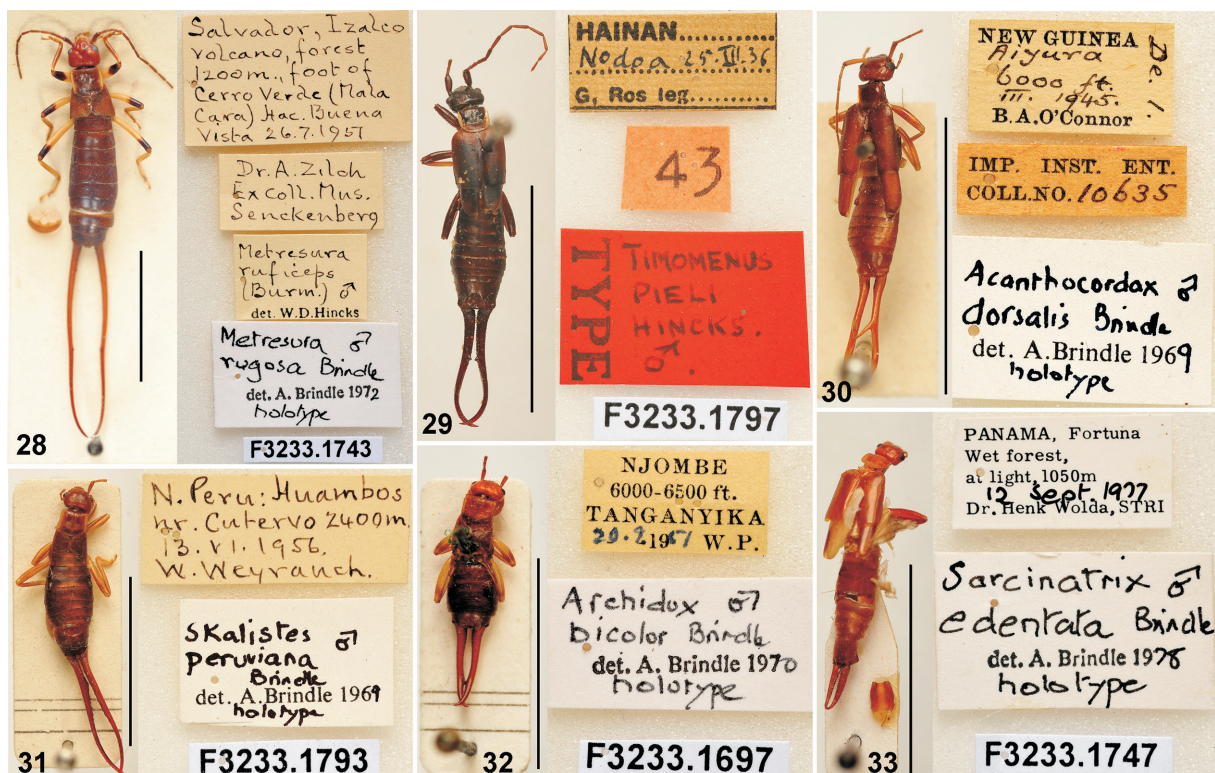 Salvador, Izalco
volcano, forest
1200m., foot of
Cerro Verde (Mala
Cara) Hac. Buena
Vista 26.7.1951
Dr. A. Zilch
Ex coll. Mus.
Senckenberg
Metresura
ruficeps
(Burm.) ♂
det. W.D. Hincks
Metresura ♂
rugosa Brindle
det. A. Brindle 1972
holotype
F3233.1743
28
HAINAN
Nodoa 25.III.36
G. Ros leg.
43
TYPE
TIMOMENUS
PIELI
HINCKS.
♂.
F3233.1797
29
NEW GUINEA
Aiyura
6000 ft.
III. 1945.
B.A.O'Connor
De. 1.
IMP. INST. ENT.
COLL.NO. 10635
Acanthocordax ♂
dorsalis Brindle
det. A. Brindle 1969
holotype
30
N. Peru: Huambos
nr. Cutervo 2400m.
13. VI. 1956.
W. Weyrauch.
Skalistes ♂
peruviana
Brindle
det. A. Brindle 1969
holotype
F3233.1793
31
NJOMBE
6000-6500 ft.
TANGANYIKA
W. P.
Archidux ♂
bicolor Brindle
det. A. Brindle 1970
holotype
F3233.1697
32
PANAMA, Fortuna
Wet forest,
at light, 1050m
12 Sept. 1977
Dr. Henk Wolda, STRI
Sarcinatrix ♂
edentata Brindle
det. A. Brindle 1978
holotype
F3233.1747
33